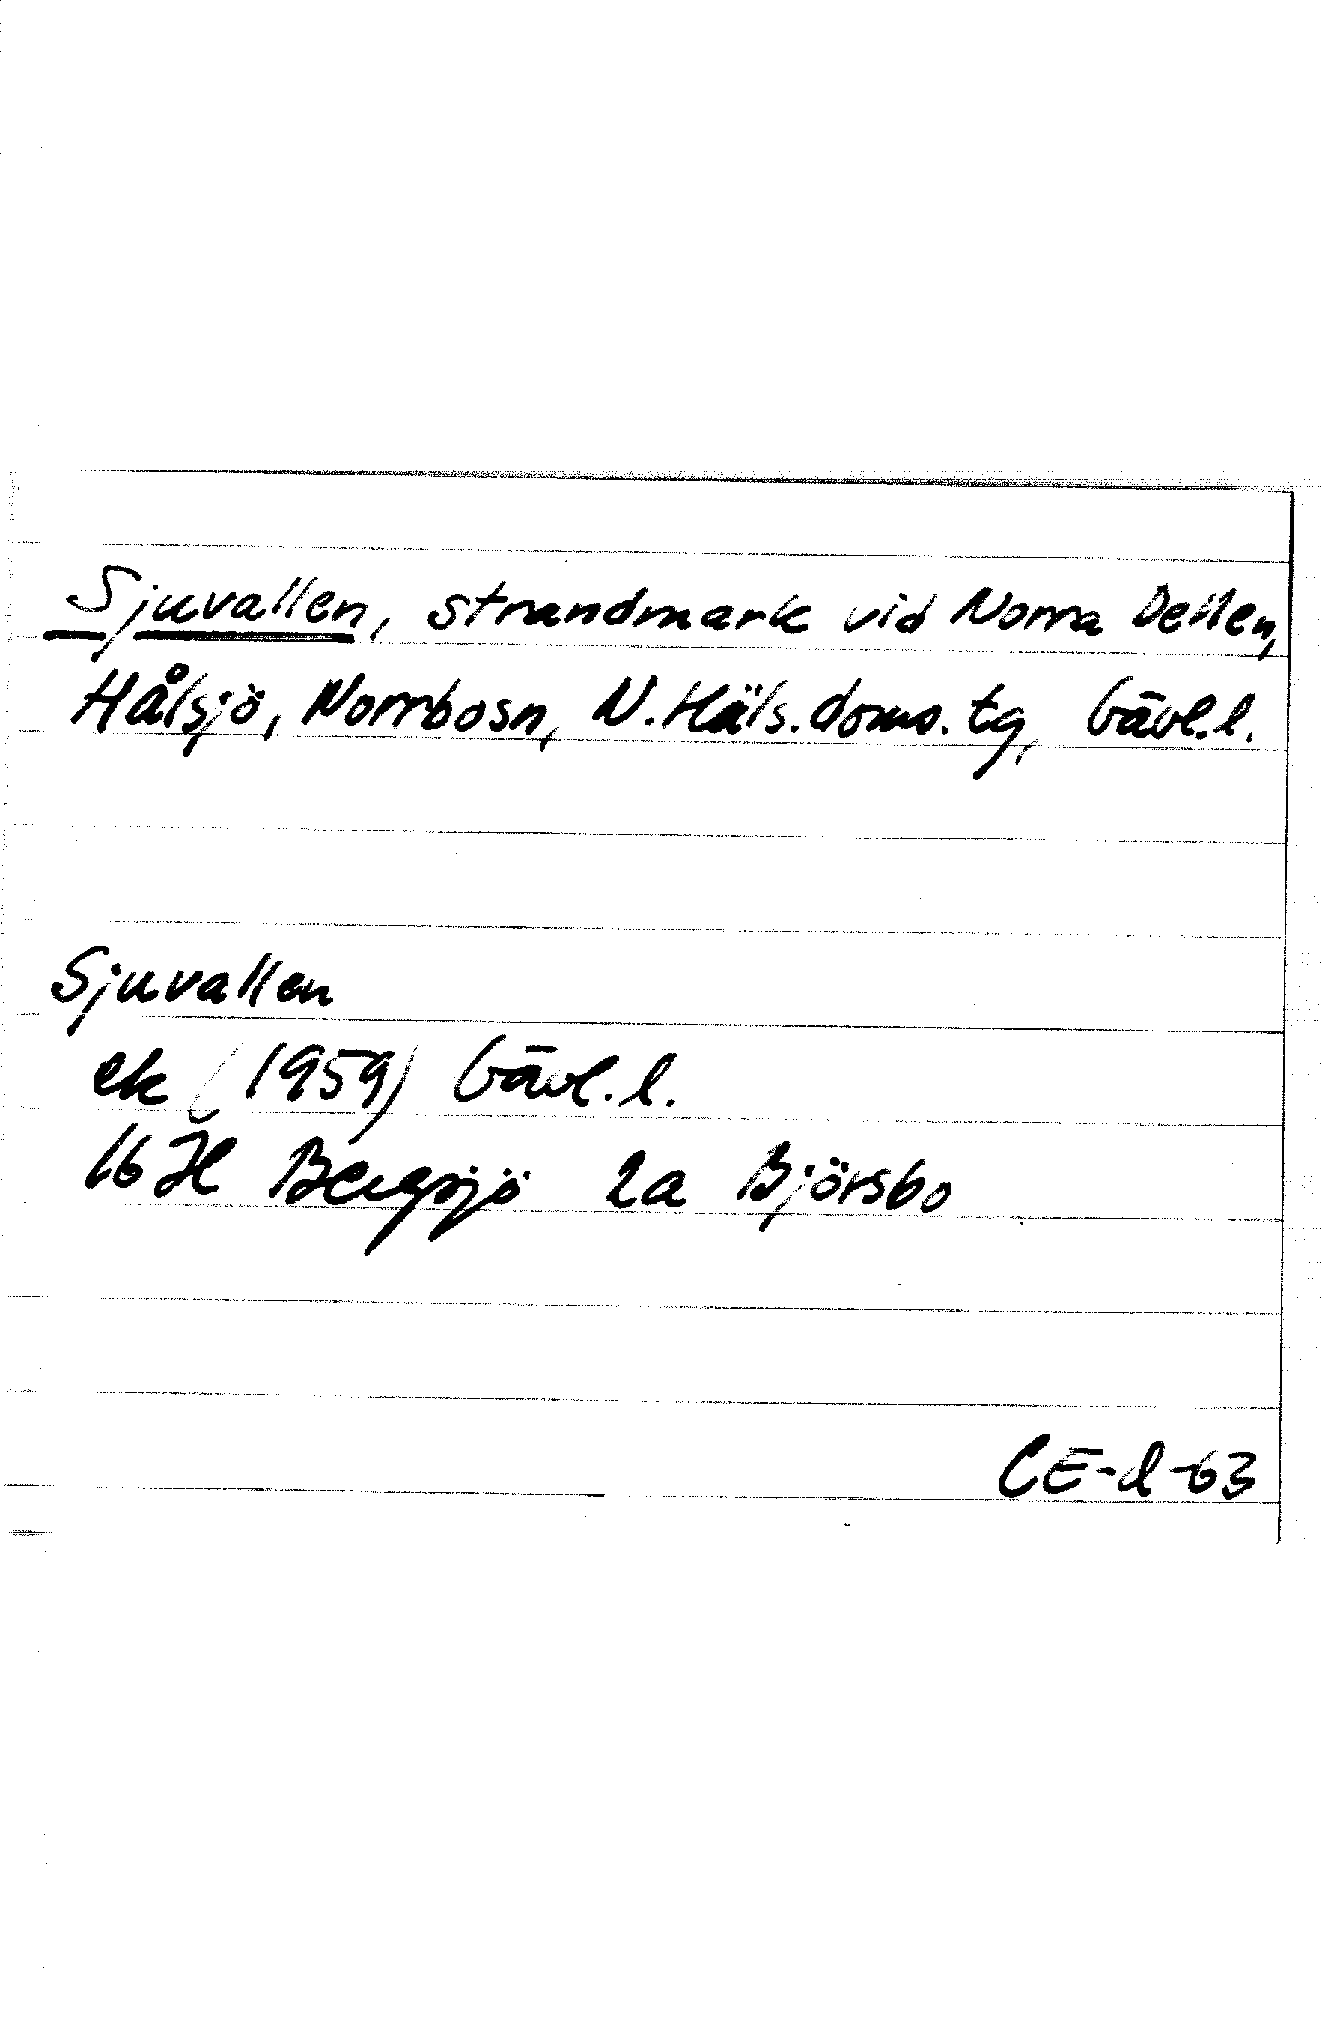 Sjuvallen, strandmark vid Norra Dellen,
Hålsjö, Norrbosn, N. Häls. doms. tg, Gävl. l.
Sjuvallen
ek (1959) Gävl. l.
16 H Bergsjö 2a Björsbo
CE-d-63